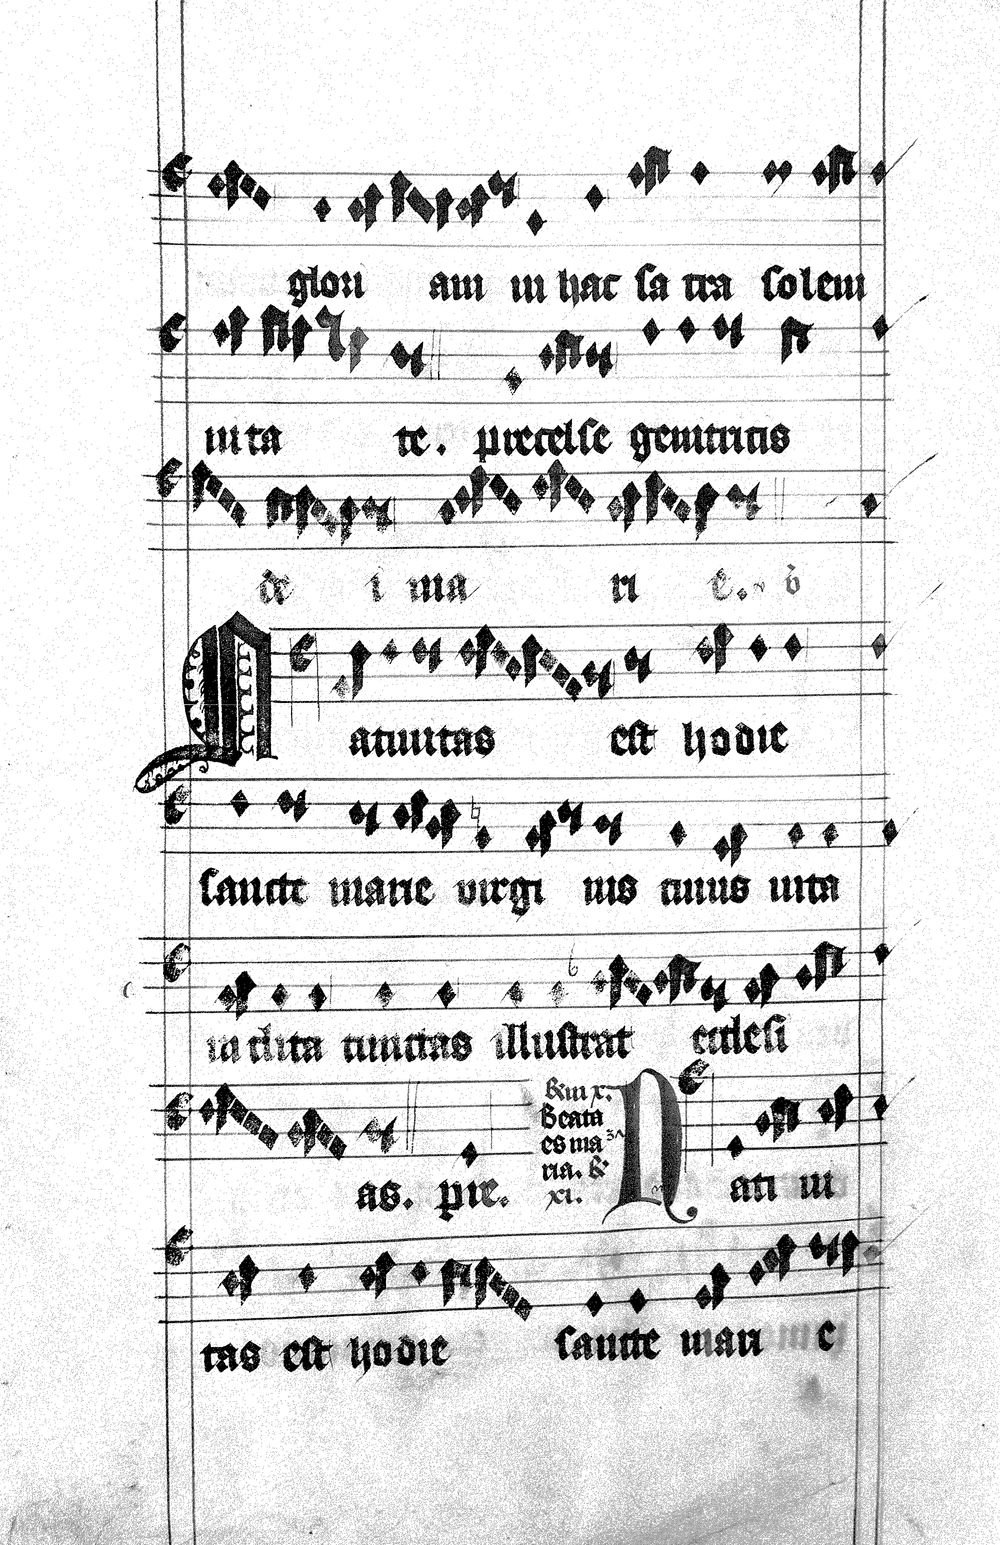 glori am in hac sa cra solem
nita te. precelse genitricis
de i ma ri e. v̄
Natiuitas est hodie
sancte marie virgi nis cuius uita
inclita cunctas illustrat ecclesi
as. pre. Beata es ma ria. xi. Nati ui
tas est hodie sancte mari e